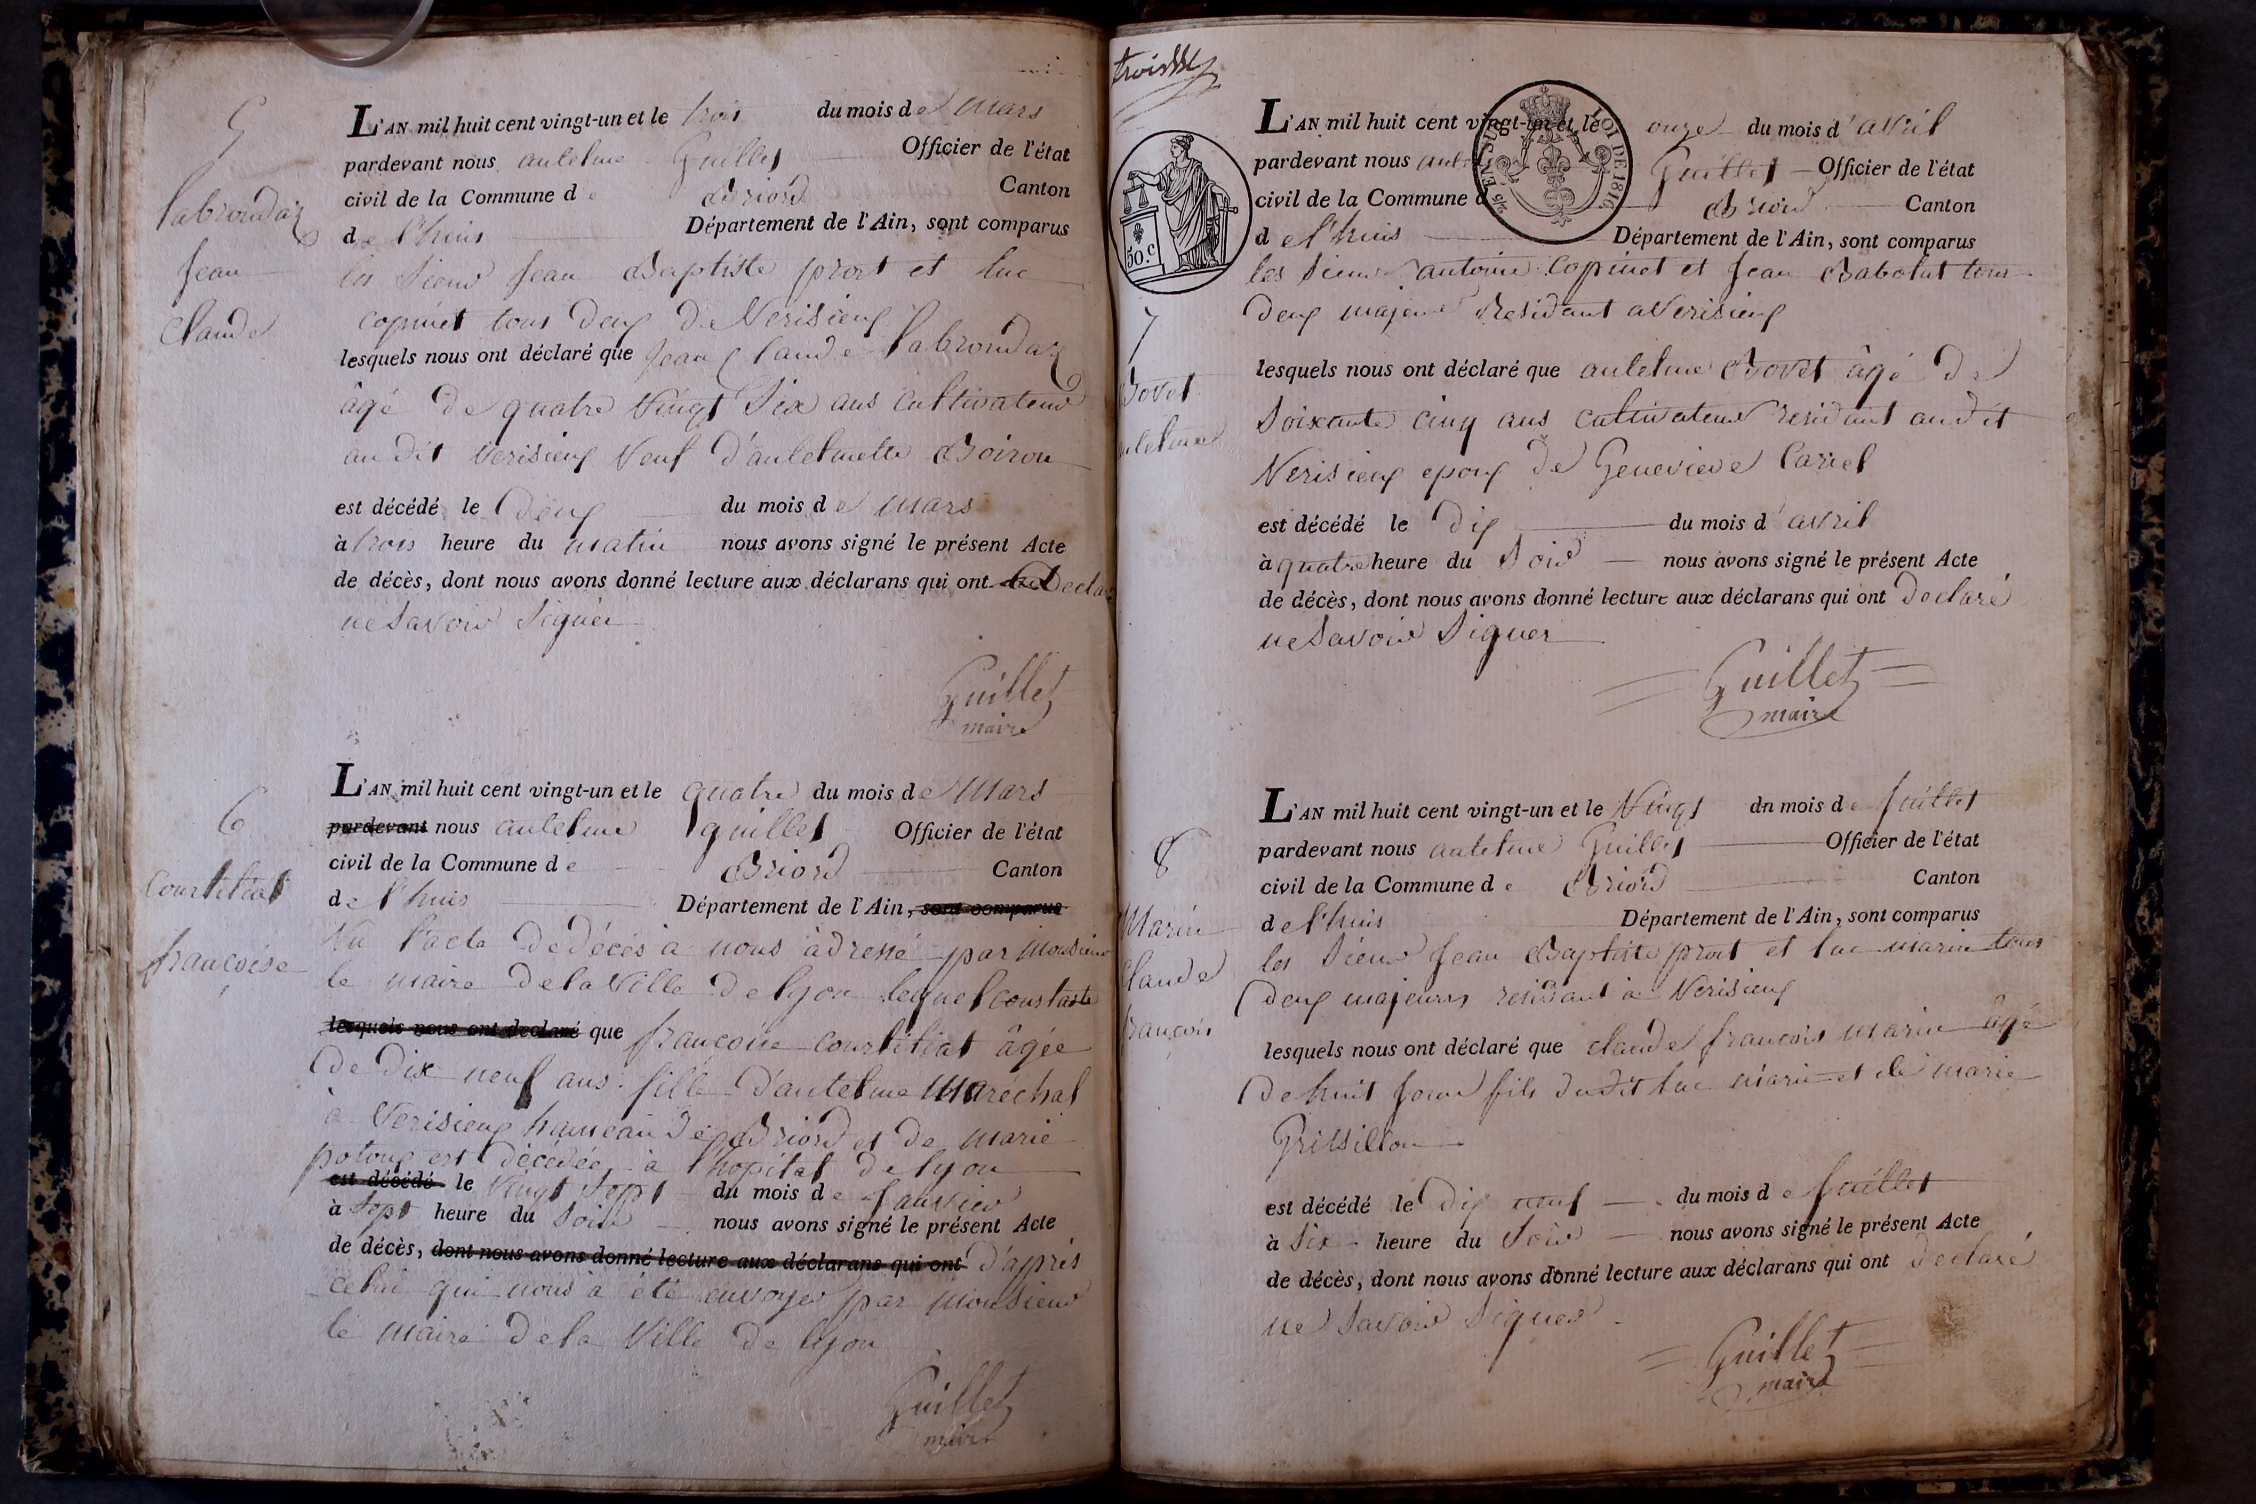 5
Labrondaz
Jean
Claude
L'AN mil huit cent vingt-un et le trois du mois de Mars
pardevant nous antelme Guillet Officier de l'état
civil de la Commune de Briord Canton
de l'huis Département de l'Ain, sont comparus
les Sieurs Jean Baptiste prost et luc
copinet tous deux de Verisieux
lesquels nous ont déclaré que Jean Claude Labrondaz
âgé de quatre Vingt Six ans cultivateur
au dit Verisieux Veuf d'antelmette Boiron
est décédé le Deux du mois de Mars
à trois heure du matin nous avons signé le présent Acte
de décès, dont nous avons donné lecture aux déclarans qui ont Declaré
ne Savoir Signer
Guillet
maire
6
Courtitiat
françoise
L'AN mil huit cent vingt-un et le quatre du mois de Mars
pardevant nous antelme guillet Officier de l'état
civil de la Commune de Briord Canton
de l'huis Département de l'Ain, sont comparus
Vu l'acte de décès à nous adressé par Monsieur
le maire de la Ville de lyon lequel constaste
lesquels nous ont déclaré que françoise courtitiat âgée
de Dix neuf ans fille d'antelme Maréchal
à Verisieux hameau de Briord et de marie
potoux est décedée à l'hopital de lyon
est décédé le Vingt Sept du mois de Janvier
à Sept heure du Soir nous avons signé le présent Acte
de décès, dont nous avons donné lecture aux déclarans qui ont D'après
celui qui nous à été envoyer par Monsieur
le maire de la Ville de lyon
Guillet
maire
50.c
25.c EN SUS
LOI DE 1816
7
Bovet
antelme
L'AN mil huit cent vingt-un et le onze du mois d'avril
pardevant nous antelme Guillet Officier de l'état
civil de la Commune de Briord Canton
de l'huis Département de l'Ain, sont comparus
les Sieurs antoine Copinet et Jean Babolat tous
deux majeurs Residant a Verisieux
lesquels nous ont déclaré que antelme Bovet âgé de
Soixante cinq ans cultivateur residant au dit
Verisieux epoux de Genevieve Carrel
est décédé le dix du mois d'avril
à quatre heure du Soir nous avons signé le présent Acte
de décès, dont nous avons donné lecture aux déclarans qui ont déclaré
ne Savoir Signer
Guillet
maire
8
Marin
Claude
françois
L'AN mil huit cent vingt-un et le Vingt dn mois de Juillet
pardevant nous antelme Guillet Officier de l'état
civil de la Commune de Briord Canton
de l'huis Département de l'Ain, sont comparus
les Sieurs Jean Baptiste prost et luc marin tous
deux majeurs residant à Verisieux
lesquels nous ont déclaré que claude françois marin âgé
de huit jour fils dudit luc marin et de marie
Grissillon
est décédé le dix neuf du mois de Juillet
à Six heure du Soir nous avons signé le présent Acte
de décès, dont nous avons donné lecture aux déclarans qui ont declaré
ne Savoir Signer
Guillet
maire